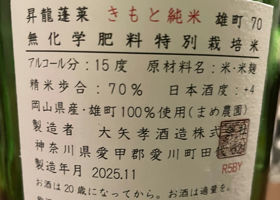 昇龍蓬莱 きもと純米 雄町70
無化学肥料特別栽培米
アルコール分：15度 原材料名：米・米麹
精米歩合：70% 日本酒度：+4
岡山県産・雄町100%使用(まめ農園)
製造者 大矢孝酒造株式会社
神奈川県愛甲郡愛川町田代
R5BY
製造年月 2025.11
お酒は20歳になってから。お酒は適量を。